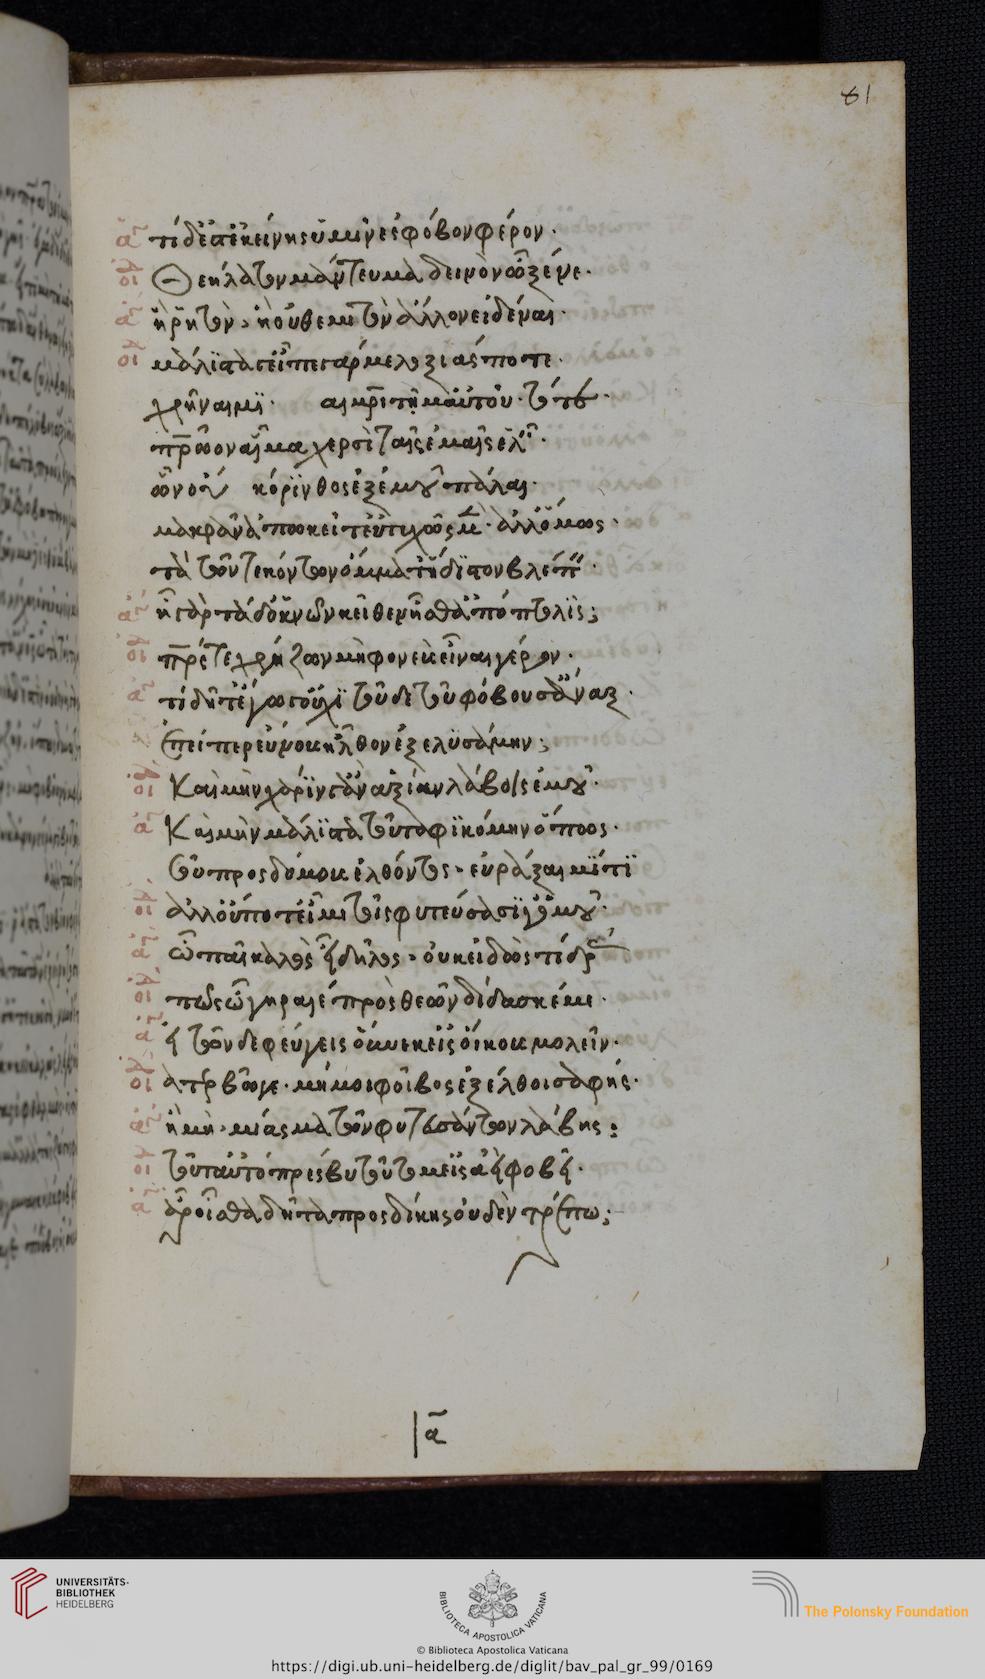 81
ἀγ τί δ' ἔστ' ἐκείνης ὑμῖν ἐς φόβον φέρον·
οἰ Θεήλατον μάντευμα δεινὸν ὦ ξένε·
ἀγ ἦ ῥητὸν· ἢ οὐ θεμιτὸν ἄλλον εἰδέναι·
οἰ μάλιστά γ' εἶπε γάρ με λοξίας ποτε·
χρῆναι μι μητρὶ τἠμαυτοῦ· τό τε·
πατρῶον αἷμα χερσὶ ταῖς ἐμαῖς ἑλεῖν·
ὧν κόρινθος ἐξ ἐμοῦ πάλαι·
μακρὰν ἀπωκεῖτ' εὐτυχῶς μὲν· ἀλλ' ὅμως·
τὰ τῶν τεκόντων ὄμματ' ἥδιστον βλέπειν·
ἀγ ἦ γὰρ τάδ' ὀκνῶν κεῖθεν ἦσθ' ἀπόπτολις;
οἰ πατρός τε χρήζων μὴ φονεὺς εἶναι γέρον·
ἀγ τί δῆτ' ἔγωγ' οὐχὶ τοῦδε τοῦ φόβου σ' ἄναξ·
ἐπείπερ εὔνους ἦλθον ἐξελυσάμην;
οἰ Καὶ μὴν χάριν γ' ἂν ἀξίαν λάβοις ἐμοῦ·
ἀγ Καὶ μὴν μάλιστα τοῦτ' ἀφικόμην ὅπως·
τοῦ προς δόμους ἐλθόντος· εὖ ράξαιμί τι
οἰ ἀλλ' οὔποτ' εἶμι τοῖς φυτεύσασί γ' ὁμοῦ·
ἀγ ὦ παῖ καλῶς εἶ δῆλος· οὐκ εἰδὼς τί δρᾶς
οἰ πῶς ὦ γηραιέ προς θεῶν δίδασκέ με·
ἀγ εἰ τῶνδε φεύγεις οὕνεκ' εἰς οἴκους μολεῖν·
οἰ ταρβῶ γε· μή μοι φοῖβος ἐξέλθοι σαφής·
ἀγ ἦ μὴ· μίασμα τῶν φυτευσάντων λάβης;
οἰ τοῦτ' αὐτό πρέσβυ τοῦτό μ' εἰς ἀεὶ φοβεῖ·
ἀγ ἆρ' οἶσθα δῆτα προς δίκης οὐδὲν τρέπω;
α
UNIVERSITÄTS-
BIBLIOTHEK
HEIDELBERG
BIBLIOTECA APOSTOLICA VATICANA
The Polonsky Foundation
© Biblioteca Apostolica Vaticana
https://digi.ub.uni-heidelberg.de/diglit/bav_pal_gr_99/0169